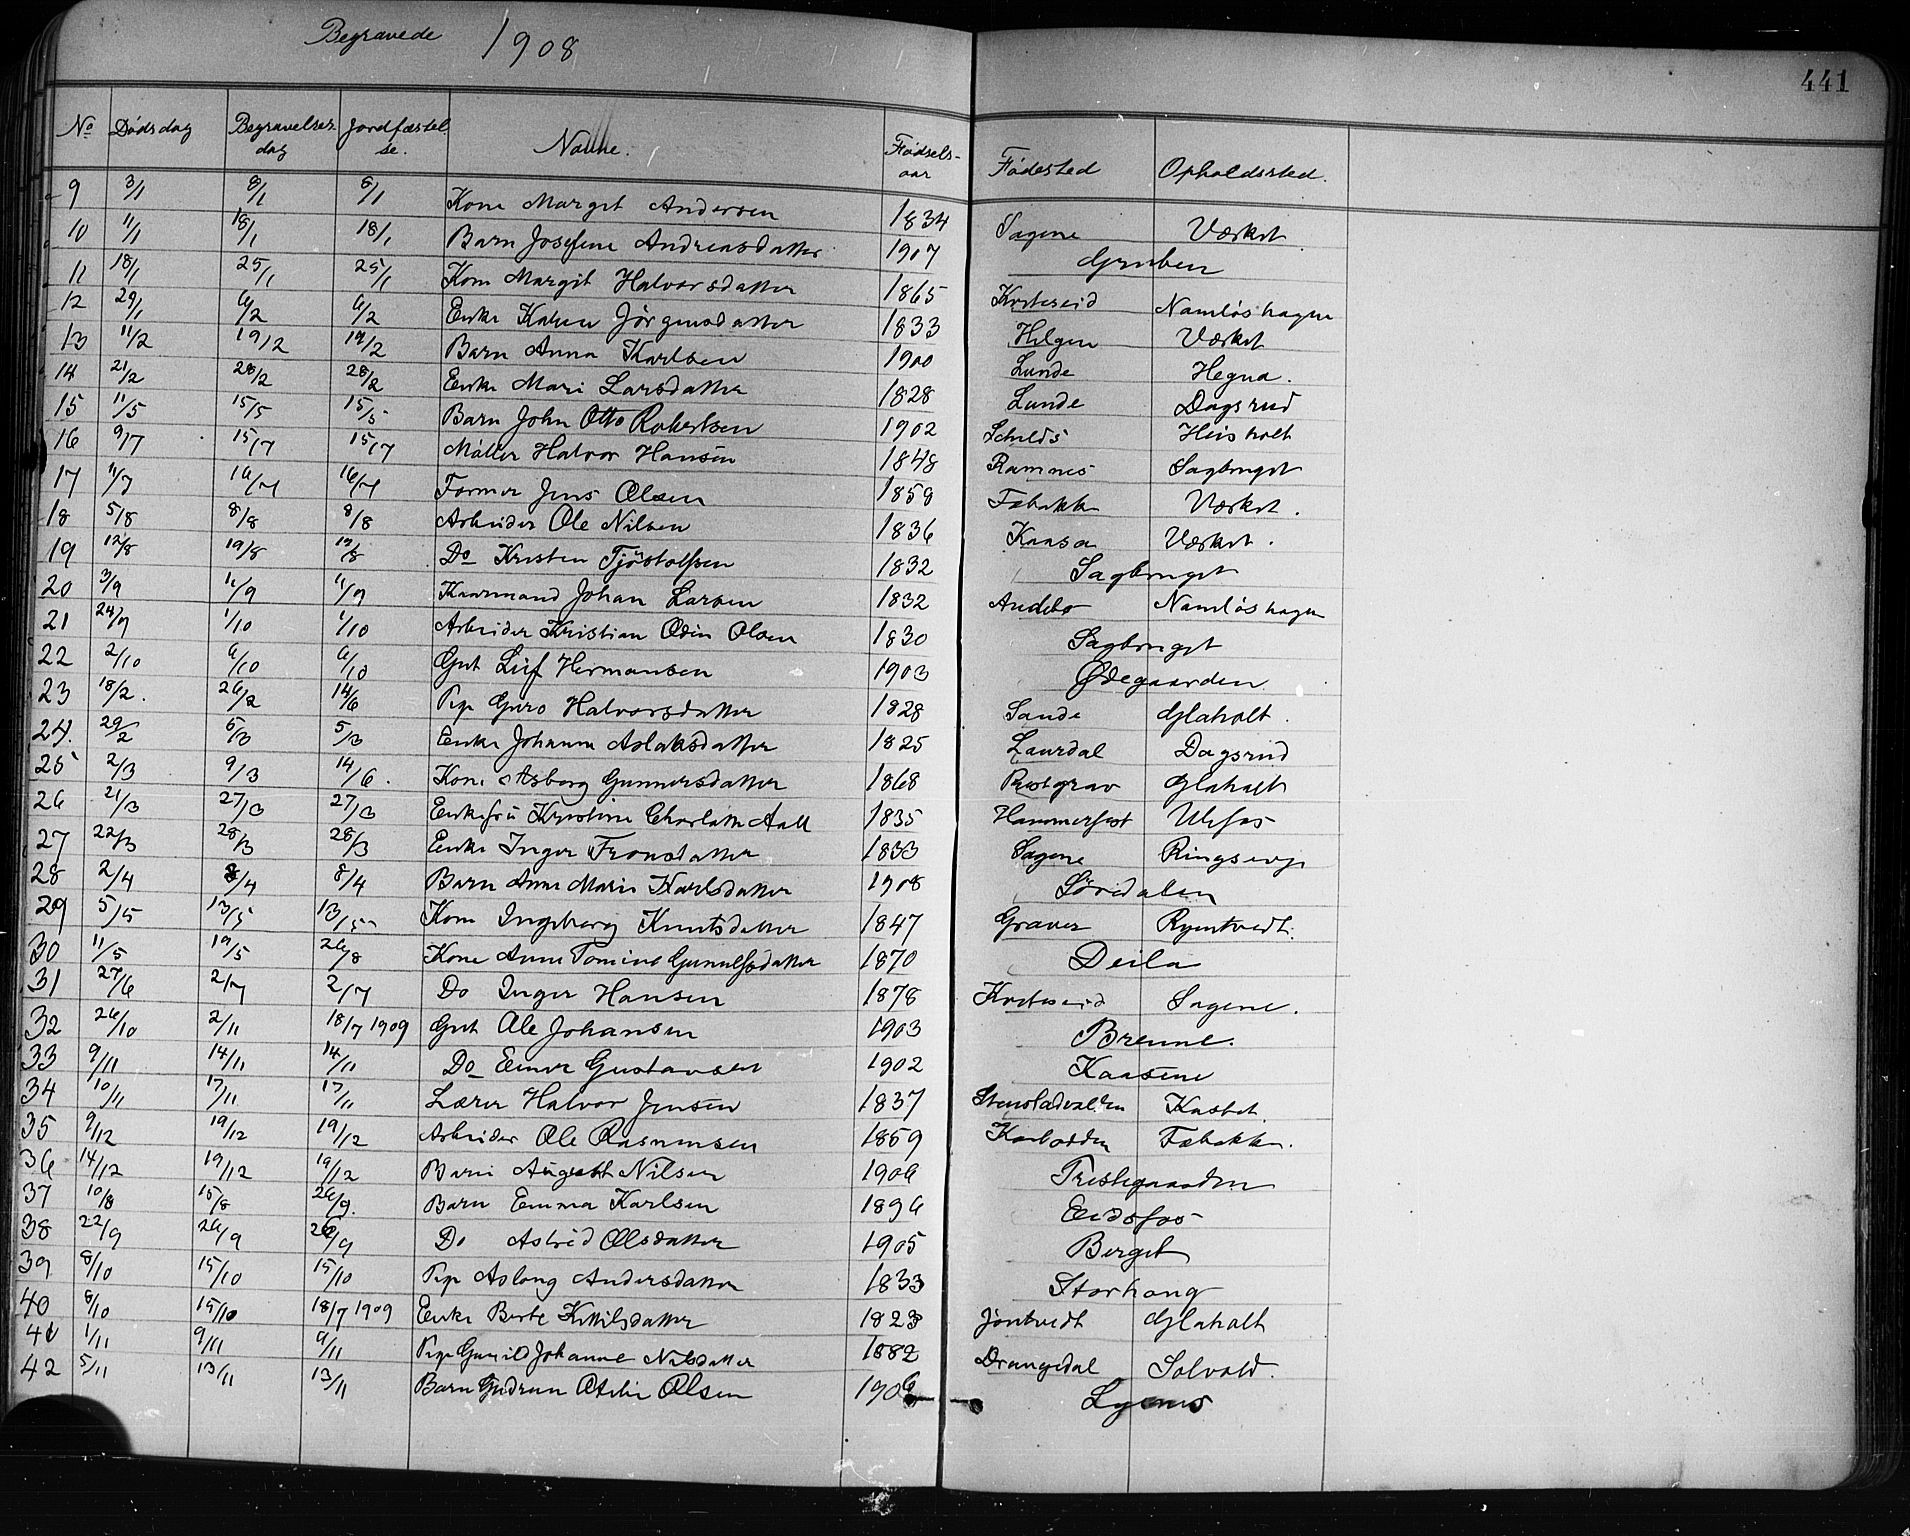 Begravede 1908
441
No Dødsdag Begravelses- dag Jordfæstel se. Navne. Fødsels- aar Fødested Opholdssted.
9 3/1 8/1 8/1 Kone Margit Andersen 1834 Sagene Værket
10 11/1 18/1 18/1 Barn Josefine Andreasdatter 1907 Gruben
11 18/1 25/1 25/1 Kone Margit Halvorsdatter 1865 Kviteseid Namløshagen
12 29/1 6/2 6/2 Enke Karen Jörgensdatter 1833 Helgen Værket
13 11/2 19/2 19/2 Barn Anna Karlsen 1900 Lunde Hegna.
14 21/2 28/2 28/2 Enke Mari Larsdatter 1828 Lunde Dagsrud
15 11/5 15/5 15/5 Barn John Otto Robertsen 1902 Heisholt
16 9/7 15/7 15/7 Møller Halvor Hansen 1848 Ramnes Sagbruget
17 11/7 16/7 16/7 Former Jens Olsen 1858 Fæbakke Værket.
18 5/8 8/8 8/8 Arbeider Ole Nilsen 1836 Kaasa Værket.
19 12/8 19/8 19/8 Do Kristen Tjöstolfsen 1832 Sagbruget
20 3/9 11/9 11/9 Kaarmand Johan Larsen 1832 Andebo Namløshagen
21 24/9 1/10 1/10 Arbeider Kristian Odin Olsen 1830 Sagbruget
22 2/10 6/10 6/10 Gut Leif Hermansen 1903 Ødegaarden
23 18/2. 26/2 14/6 Pige Guro Halvorsdatter 1828 Sande Glaholt.
24. 29/2 5/3 5/3 Enke Johanne Aslaksdatter 1825 Laurdal Dagsrud
25 2/3 9/3 14/6. Kone Asborg Gunnersdatter 1868 Prestgrav Glaholt
26 21/3 27/3 27/3 Enkefru Kristine Charlotte Aall 1835 Hammerfest Ulefos
27 22/3 28/3 28/3 Enke Inger Fransdatter 1833 Sagene Ringsevje
28 2/4 8/4 8/4 Barn Anne Marie Karlsdatter 1908 Sördalen
29 5/5 13/5 13/5 Kone Ingeborg Knutsdatter 1847 Graver Ryntvedt.
30 11/5 19/5 26/8 Kone Anne Tomine Gunnulfsdatter 1870 Deila
31 27/6 2/7 2/7 Do Inger Hansen 1878 Kviteseid Sagene.
32 26/10 2/11 18/7 1909 Gut Ole Johansen 1903 Brenne.
33 9/11 14/11 14/11 Do Einar Gustavsen 1902 Kaasene
34 10/11 17/11 17/11 Lærer Halvor Jensen 1837 Kastet.
35 9/12 19/12 19/12 Arbeider Ole Rasmussen 1859 Kaabodden Fæbakke.
36 14/12 19/12 19/12 Barn August Nilsen 1906 Prestegaarden
37 10/8 15/8 26/9. Barn Emma Karlsen 1896 Eidsfos
38 22/9 26/9 26/9 Do Astrid Olsdatter 1905 Berget
39 8/10 15/10 15/10 Pige Aslaug Andersdatter 1833 Storhaug
40 8/10 15/10 18/7 1909 Enke Berte Kittilsdatter 1823 Jöntvedt Glaholt
41 1/11 9/11 9/11 Pige Gunild Johanne Nilsdatter 1882 Drangedal Solvold.
42 5/11 13/11 13/11 Barn Gudrun Otelie Olsen 1906